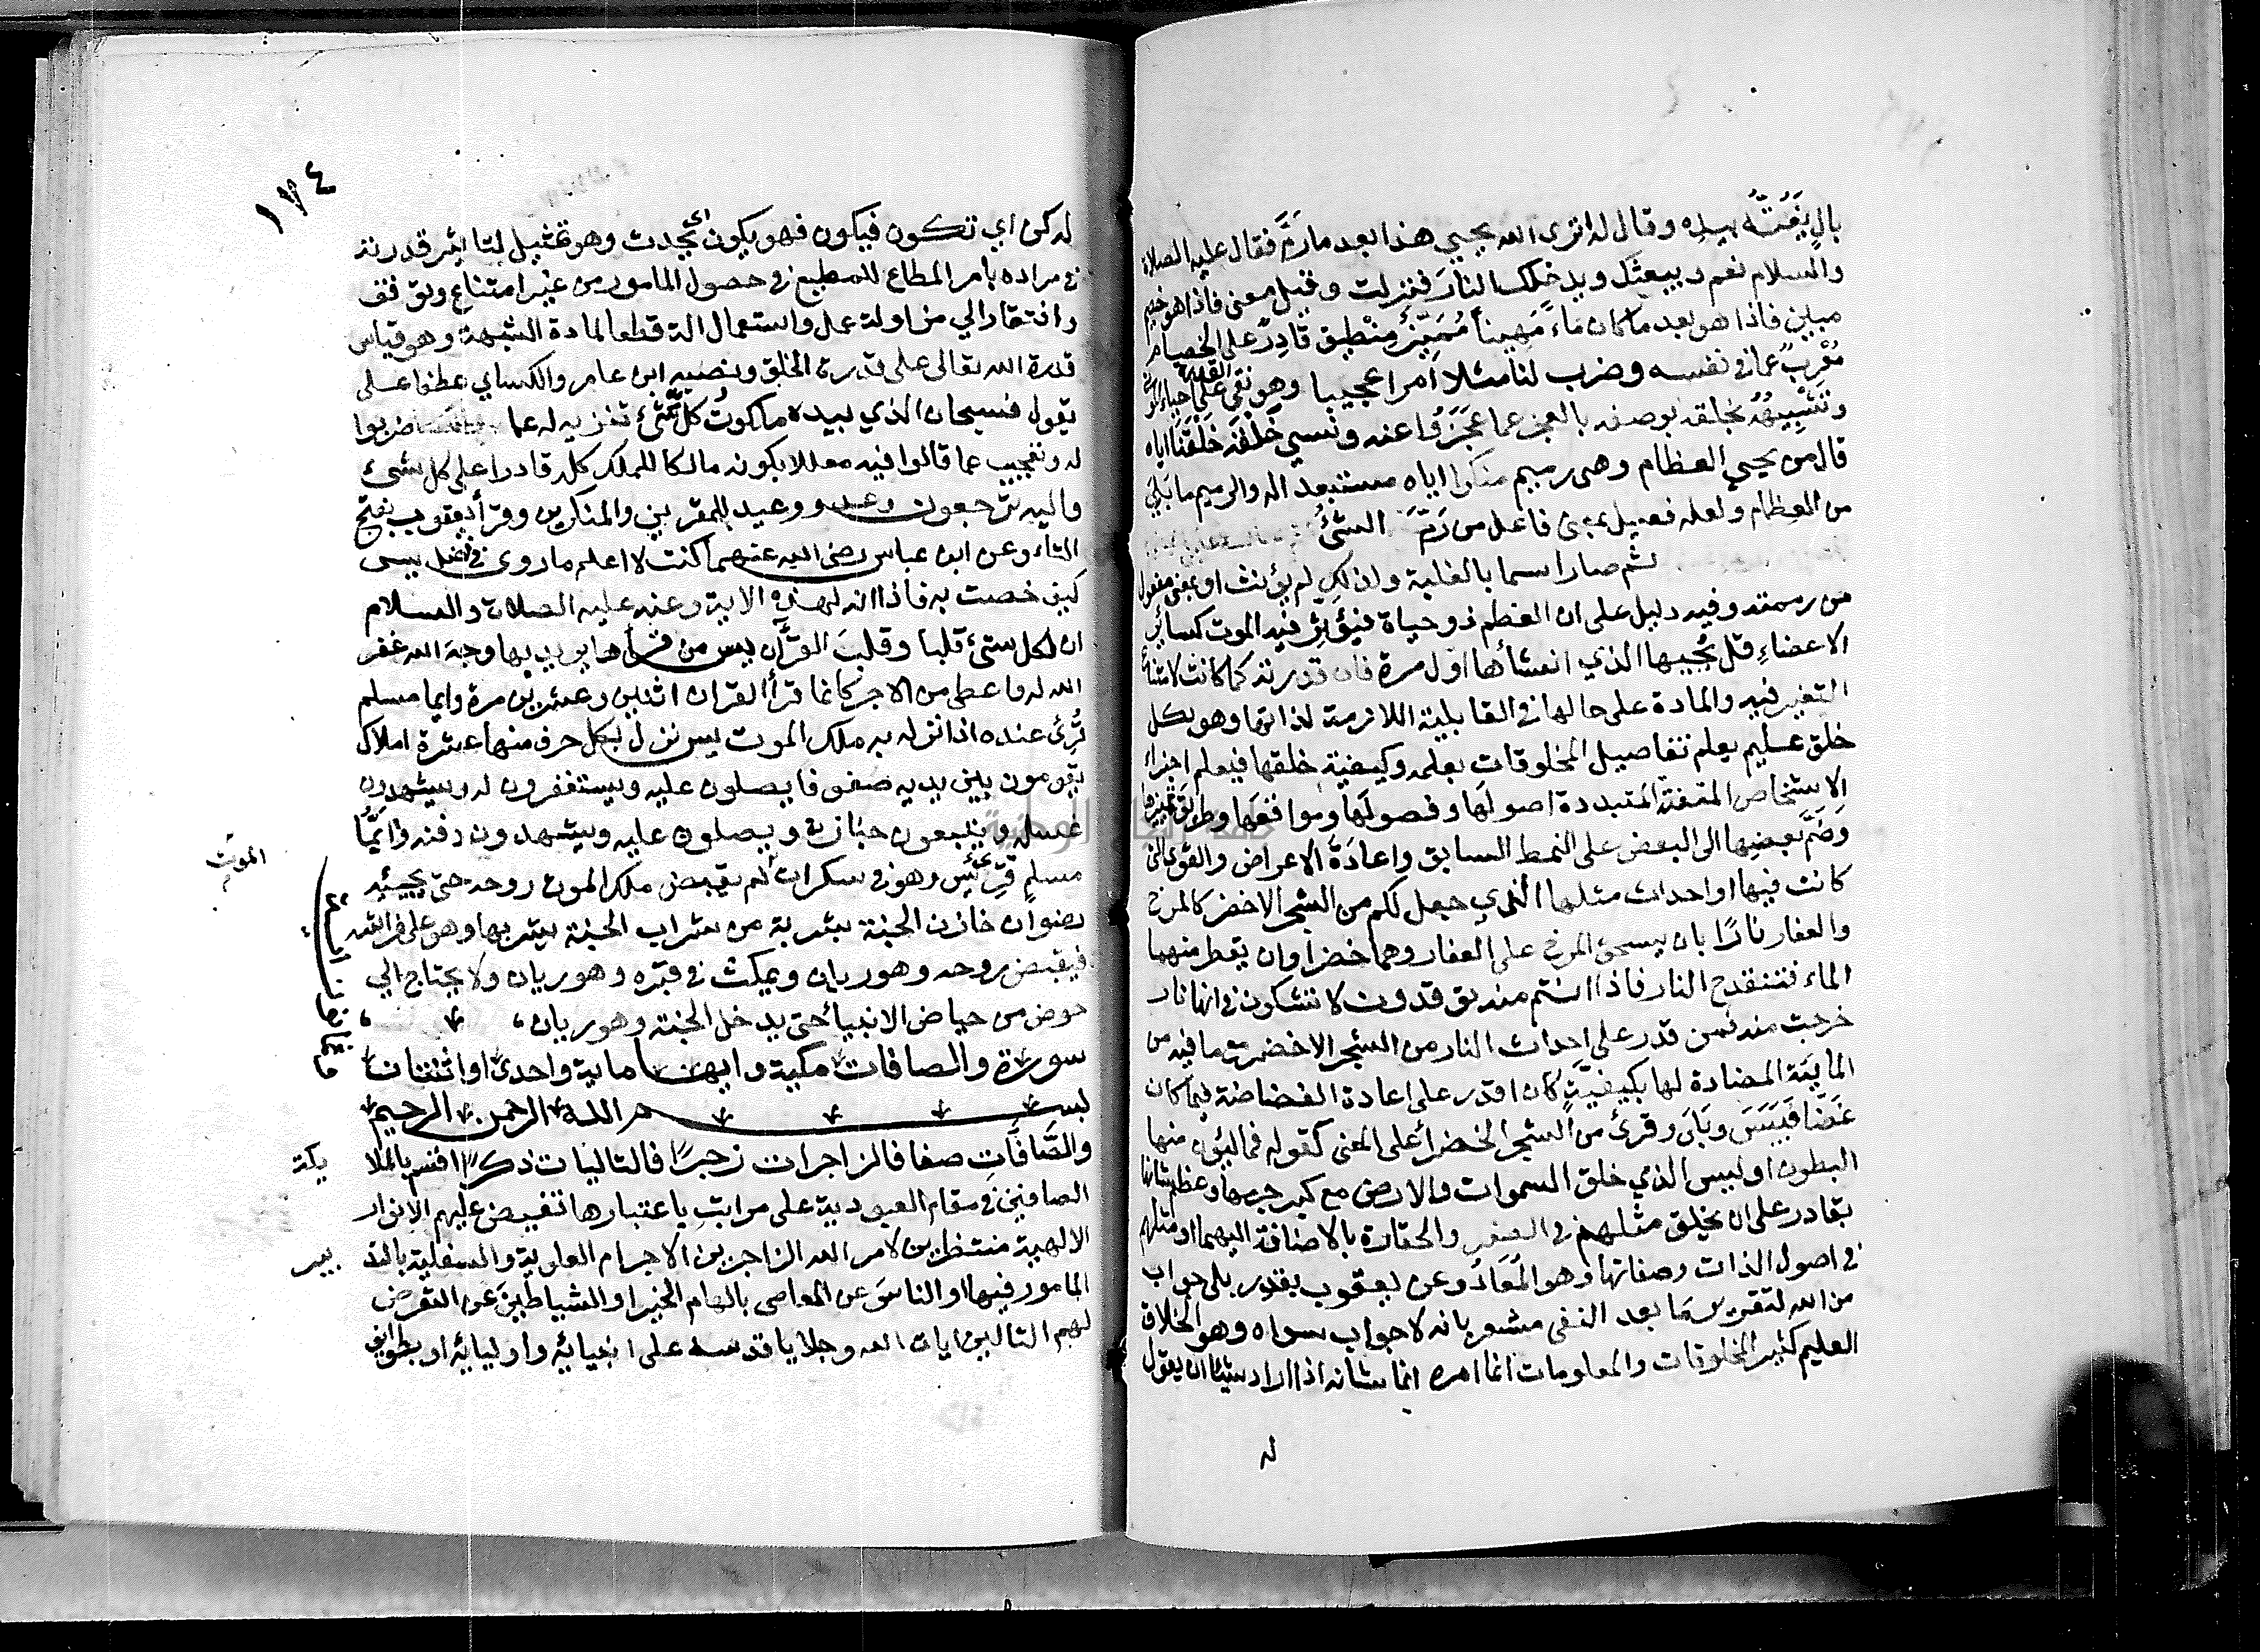 بالٍ يَفَتُّه بيده وقال له اترى الله يحيي هذا بعد مارمَّ فقال عليه الصلاة
والسلام نعم ويبعثك ويدخلك النارَ فنزلت وقيل معنى فاذا هو خصيم
مبين فاذا هو بعد ما كان مَاءً مَهِيناً مُمَيِّزٌ مِنْطِيق قادِرٌ على الخصام
مُعْرِبٌ عما في نفسه وضرب لنا مثلا امرا عجيبا وهو نفى القدرة على احياء الموتى
وتَشْبِيهُهُ بخلقه بوصفه بالعجز عما عَجَزُوا عنه ونسي خَلْقَه خَلْقَنَا اياه
قال من يحيي العظام وهى رميم منكرا اياه مستبعدا له والرميم ما بَلِيَ
من العِظام ولعله فعيل بمعنى فاعل من رَمَّ الشئُ
ثم صار اسما بالغلبة ولذلك لم يؤنث او بمعنى مفعول
من رممته وفيه دليل على ان العظم ذو حياة فيُؤثِّر فيه الموت كسائر
الاعضاءِ قل يُحييها الذي انشأها اول مرة فان قدرته كما كانت لامتناع
التغير فيه والمادة على حالها في القابلية اللازمة لذاتها وهو بكل
خلق عليم يعلم تفاصيل المخلوقات بعلمه وكيفية خلقها فيعلم اجزاء
الاشخاص المتفتتة المتبددة اصولَها وفصولَها ومواقعَها وطريقَ تمييزها
وضَمَّ بعضِها الى البعض على النمط السابق واعادَةَ الاعراض والقوى التى
كانت فيها او احداث مثلها الذي جعل لكم من الشجر الاخضر كالمرخ
والعفار نارًا بان يسحق المرخ على العفار وهما خضراوان يقطر منهما
الماء فتنقدح النار فاذا انتم منه توقدون لا تشكون في انها نار
خرجت منه فمن قدر على احداث النار من الشجر الاخضر مع ما فيه من
المايية المضادة لها بكيفيَّتِه كان اقدر على اعادة الغضاضة فيما كان
غَضًّا فَيَبَسَ وبَلَى وقرئ من الشجر الخضراءِ على المعنى كقوله فمالئون منها
البطون اوليس الذي خلق السموات والارض مع كبر جرمها وعظم شأنها
بقادر على ان يخلق مثلهم في الصغر والحقارة بالاضافة اليهما او مثلهم
في اصول الذات وصفاتها وهو المُعَاد وعن يعقوب يقدر بلى جواب
من الله لتقرير مَا بعد النفى مشعر بانه لا جواب سواه وهو الخلاق
العليم كثير المخلوقات والمعلومات انما امره انما شانه اذا اراد شيئا ان يقول
له
١٧٤
له كن اي تكون فيكون فهو يكون اى يحدث وهو تمثيل لتاثير قدرته
في مراده بامر المطاع للمطيع في حصول المامور من غير امتناع وتوقف
وافتقار الي مزاولة عمل واستعمال الة قطعا لمادة الشبهة وهو قياس
قدرة الله تعالى على قدرة الخلق ونصبه ابن عامر والكساي عطفا على
يقول فسبحان الذي بيده ملكوتُ كل شئ تنزيه له عما ضربوا
له وتعجيب عما قالوا فيه معللا بكونه مالكا للملك كله قادرا على كل شئ
واليه ترجعون وعد ووعيد للمقرين والمنكرين وقرأ يعقوب بفتح
التاء وعن ابن عباس رضى الله عنهما كنت لا اعلم ماروى في فضل يس
كيف خصت به فاذا انه لهذه الاية وعنه عليه الصلاة والسلام
ان لكل شئ قلبا وقلبَ القرآن يس من قرأها يريد بها وجهَ الله غفر
الله له واعطى من الاجر كانما قرأ القران اثنين وعشرين مرة وايما مسلم
قُرِئ عنده اذا نزل به ملك الموت يس نزل بكل حرف منها عشرة املاك
يقومون بين يديه صفوفا يصلون عليه ويستغفرون له ويشهدون
غسله ويتبعون جنازته ويصلون عليه ويشهدون دفنه وايُّما
مسلمٍ قرئ يس وهو في سكرات لم يقبض ملك الموت روحه حتى يجيئه
الموت
رضوان خازن الجنة بشربة من شراب الجنة يشربها وهو على فراشه
فيقبض روحه وهو ريان ويمكث في قبره وهو ريان ولا يحتاج الي
حوض من حياض الانبياءِ حتى يدخل الجنة وهو ريان،
سورة والصافات مكية وايها ماية واحدى او اثنتان
بسم الله الرحمن الرحيم
والصَّافَّاتِ صفا فالزاجرات زجرًا فالتاليات ذكرًا اقسم بالملا يكة
الصافين في مقام العبودية على مراتبٍ باعتبارها تفيض عليهم الانوار
الالهية منتظرين لامر الله الزاجرين الاجرام العلوية والسفلية بالتد بير
المامور فيها او الناسَ عن المعاصى بالهام الخير او الشياطينَ عن التعرض
لهم التالين ايات الله وجلايا قدسه على انبيائه واوليائه او بطوايف